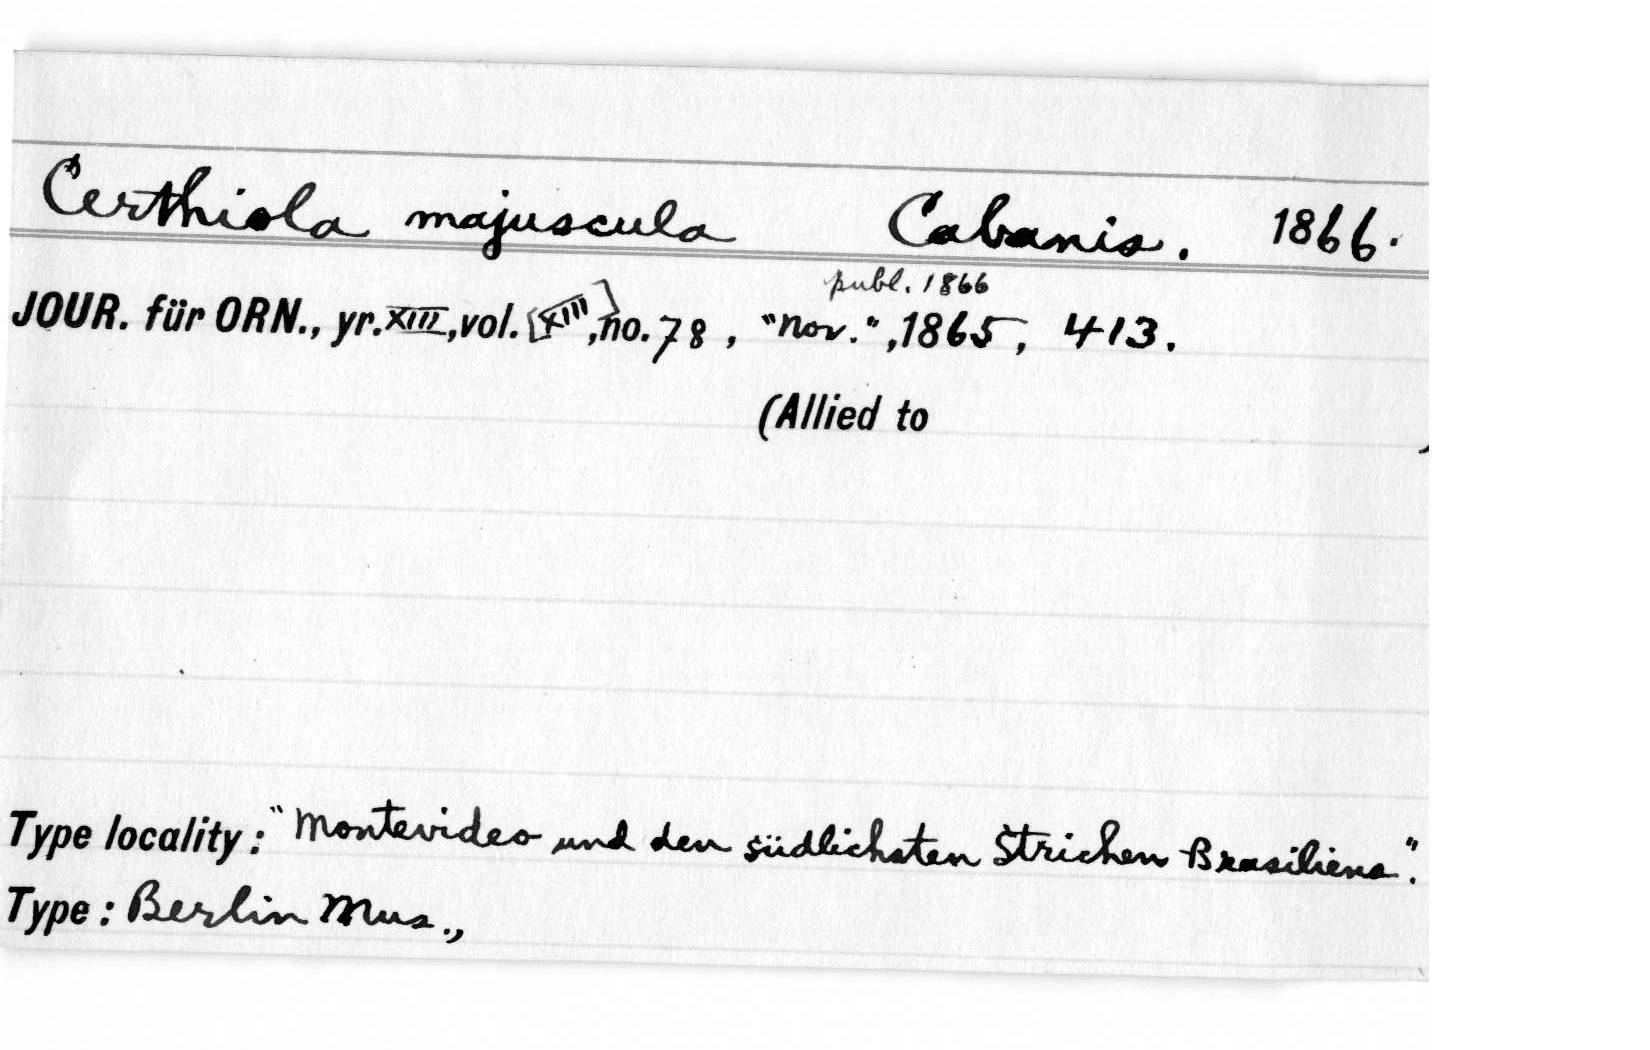 Certhiola majuscula Cabanis. 1866.
publ. 1866
JOUR. für ORN., yr. XIII, vol. [XIII], no. 78, "Nov.", 1865, 413.
(Allied to )
Type locality: "Montevideo und den südlichsten Strichen Brasiliens".
Type: Berlin Mus.,